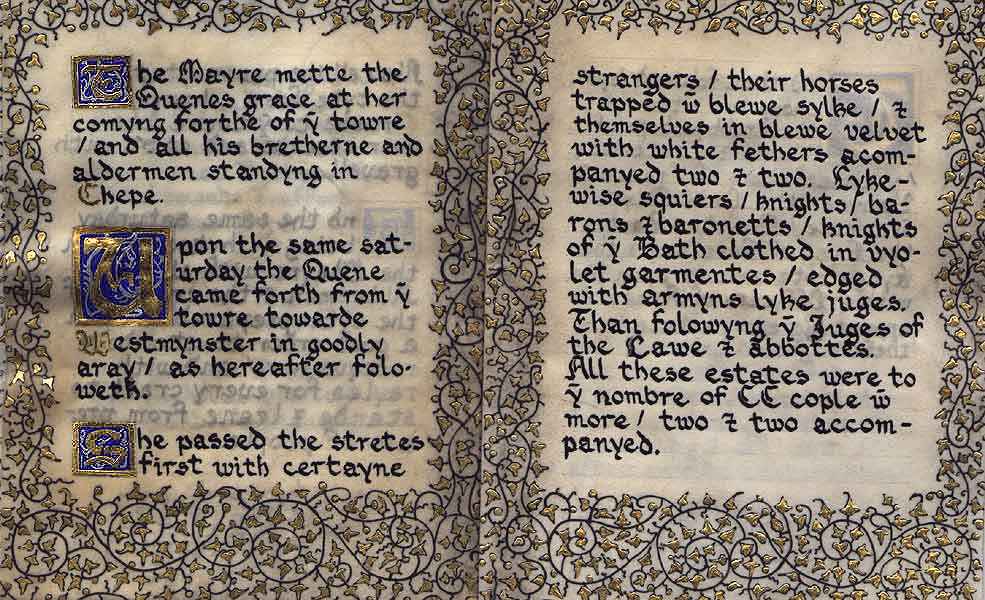 The Mayre mette the
Quenes grace at her
comyng forthe of ẏ towre
/ and all his bretherne and
aldermen standyng in
Chepe.
Upon the same sat-
urday the Quene
came forth from ỹ
towre towarde
Westmynster in goodly
aray / as hereafter folo-
weth.
She passed the stretes
first with certayne
strangers / their horses
trapped w̃ blewe sylke / ⁊
themselves in blewe velvet
with white fethers acom-
panyed two ⁊ two. Lyke-
wise squiers / knights / ba-
rons ⁊ baronetts / knights
of ỹ Bath clothed in vyo-
let garmentes / edged
with armyns lyke juges.
Than folowyng ỹ Juges of
the Lawe ⁊ abbottes.
All these estates were to
ỹ nombre of CC cople w̃
more / two ⁊ two accom-
panyed.